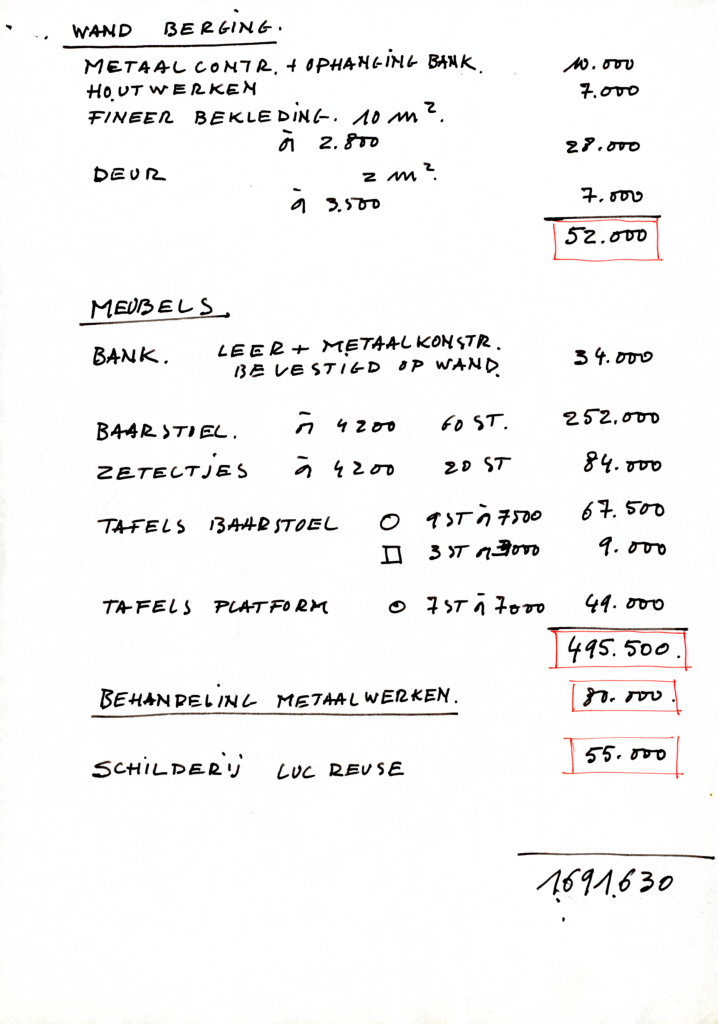 WAND BERGING.
METAALCONTR. + OPHANGING BANK. 10.000
HOUTWERKEN 7.000
FINEER BEKLEDING. 10 m².
à 2.800 28.000
DEUR 2 m².
à 3.500 7.000
52.000
MEUBELS.
BANK. LEER + METAALKONSTR.
BEVESTIGD OP WAND. 34.000
BAARSTOEL. à 4200 60 ST. 252.000
ZETELTJES à 4200 20 ST 84.000
TAFELS BAARSTOEL ○ 9 ST à 7500 67.500
□ 3 ST à 3000 9.000
TAFELS PLATFORM ○ 7 ST à 7000 49.000
495.500.
BEHANDELING METAALWERKEN. 80.000.
SCHILDERIJ LUC REUSE 55.000
1.691.630